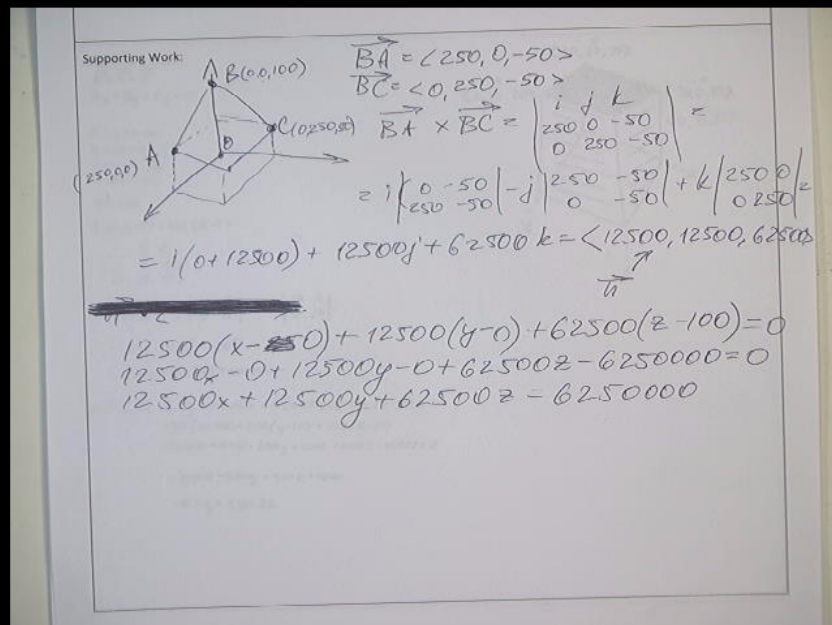 Supporting Work:
B(0,0,100)
C(0,250,50)
A
(250,0,0)
0
BA = <250, 0, -50>
BC = <0, 250, -50>
BA × BC = | i j k 250 0 -50 0 250 -50 | =
= i | 0 -50 250 -50 | - j | 250 -50 0 -50 | + k | 250 0 0 250 | =
= i(0+12500) + 12500j + 62500k = <12500, 12500, 62500>
n
12500(x-0) + 12500(y-0) + 62500(z-100) = 0
12500x - 0 + 12500y - 0 + 62500z - 6250000 = 0
12500x + 12500y + 62500z = 6250000